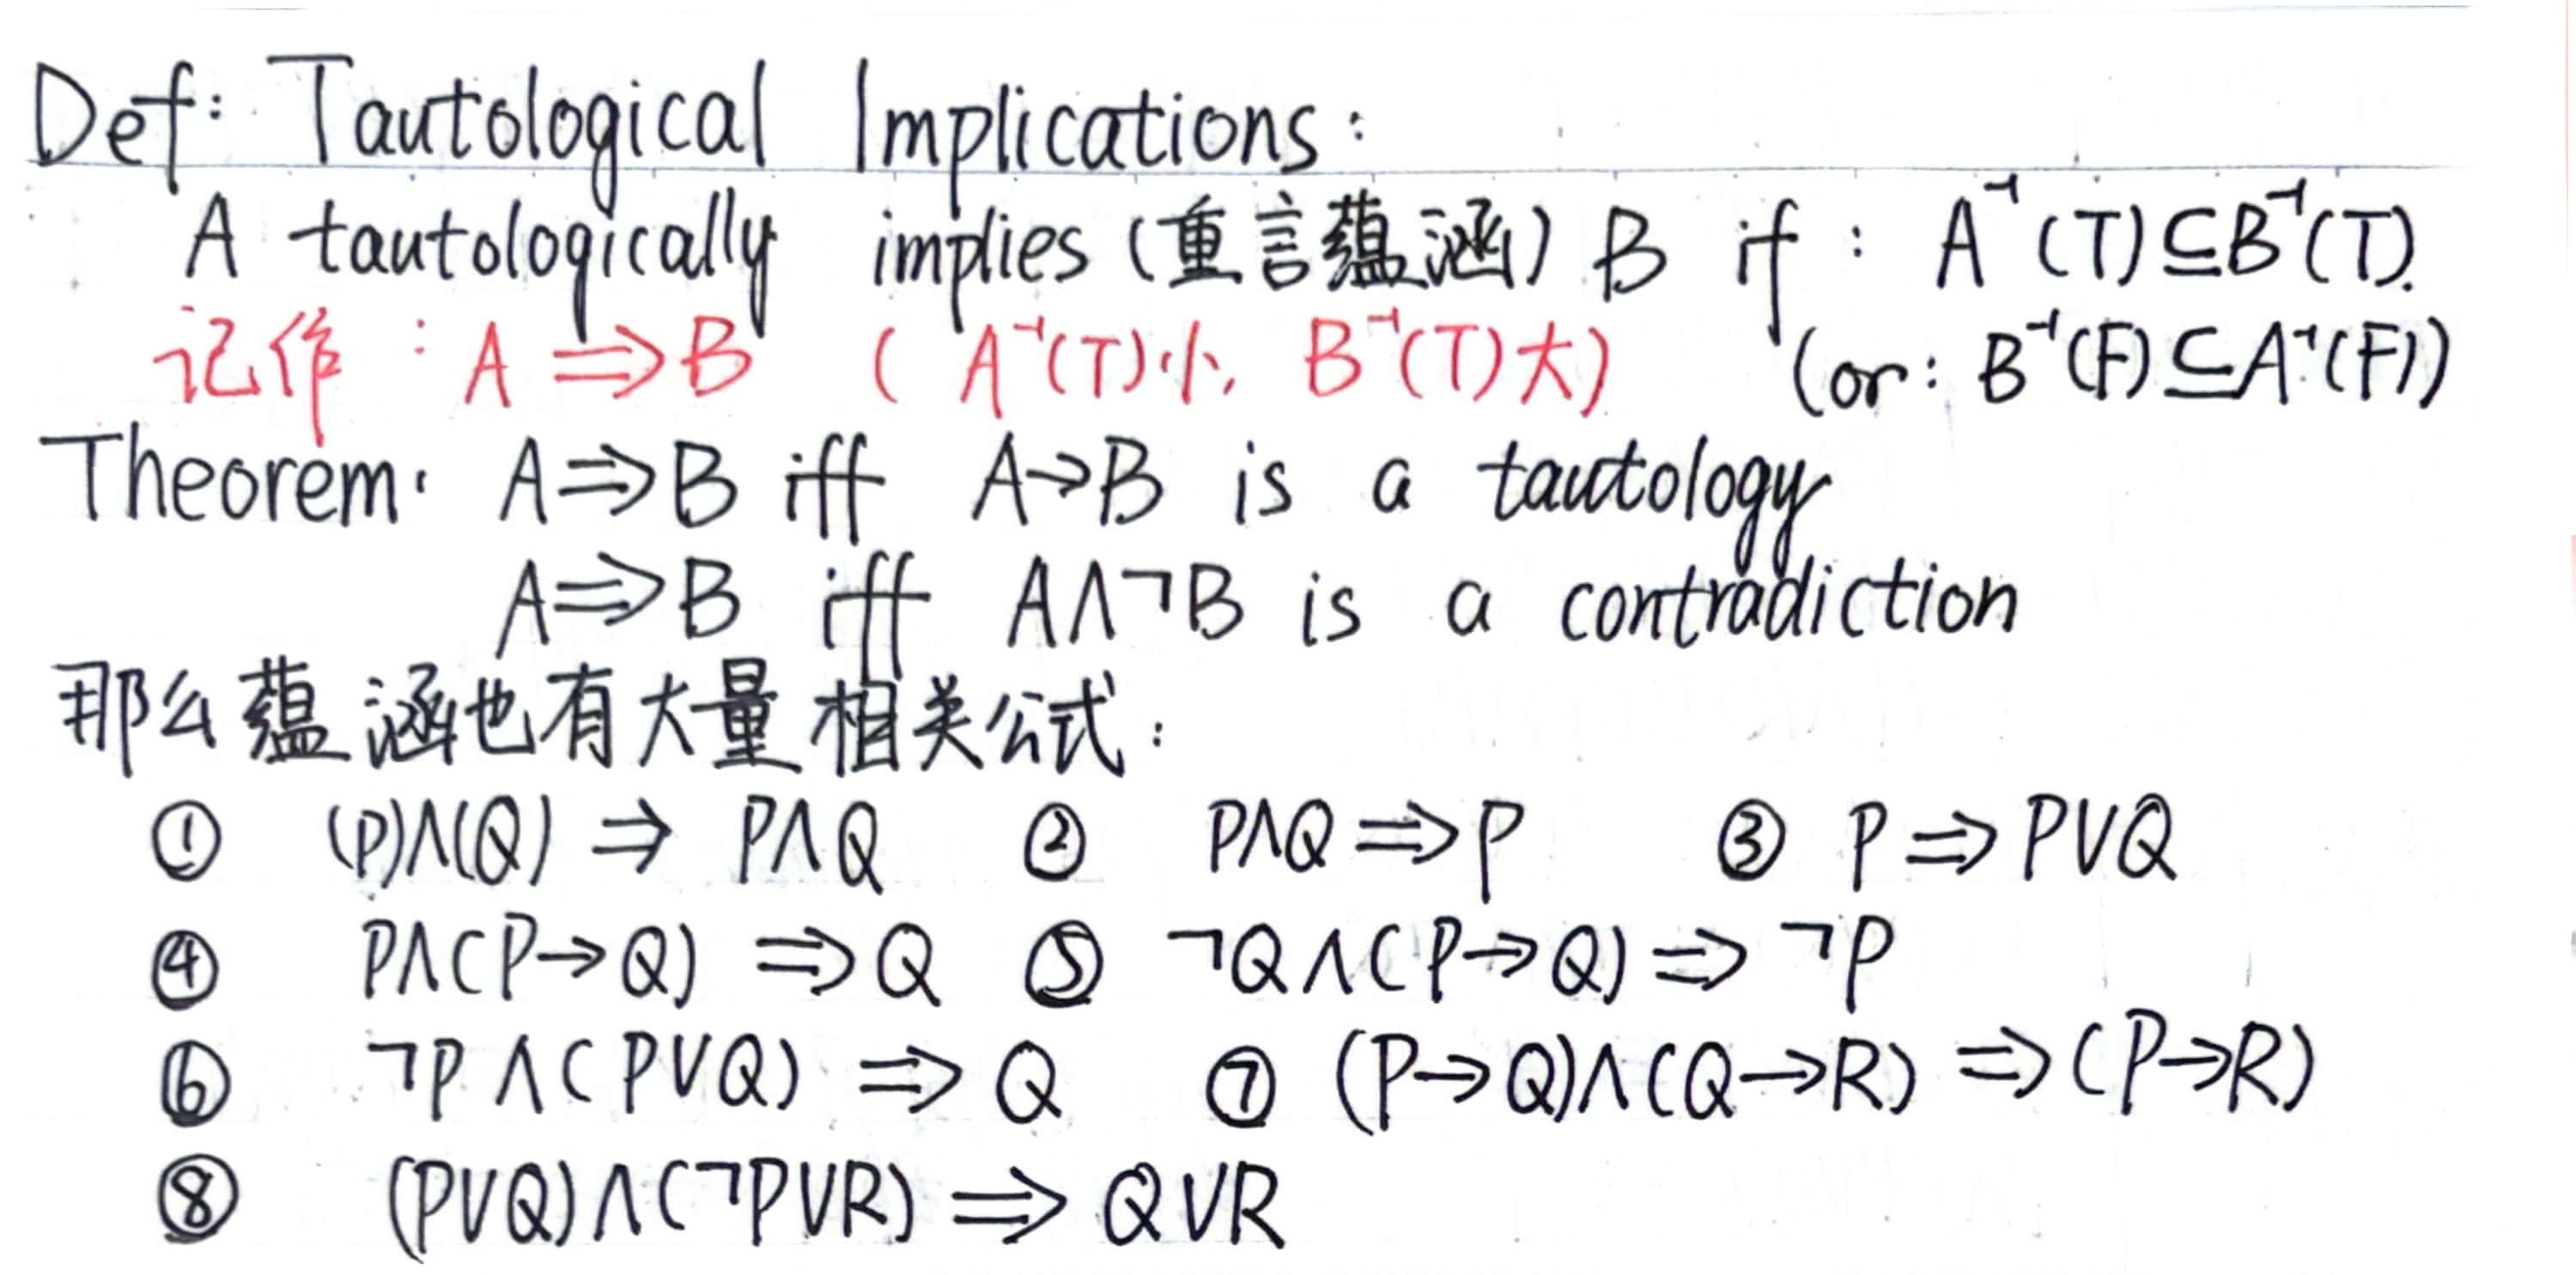 Def: Tautological Implications:
A tautologically implies (重言蕴涵) B if : A⁻¹(T)⊆B⁻¹(T).
记作 : A ⇒ B ( A⁻¹(T)小, B⁻¹(T)大) (or: B⁻¹(F)⊆A⁻¹(F))
Theorem: A⇒B iff A→B is a tautology
A⇒B iff A∧¬B is a contradiction
那么蕴涵也有大量相关公式:
① (P)∧(Q) ⇒ P∧Q ② P∧Q ⇒ P ③ P ⇒ P∨Q
④ P∧(P→Q) ⇒ Q ⑤ ¬Q∧(P→Q) ⇒ ¬P
⑥ ¬P∧(P∨Q) ⇒ Q ⑦ (P→Q)∧(Q→R) ⇒ (P→R)
⑧ (P∨Q)∧(¬P∨R) ⇒ Q∨R